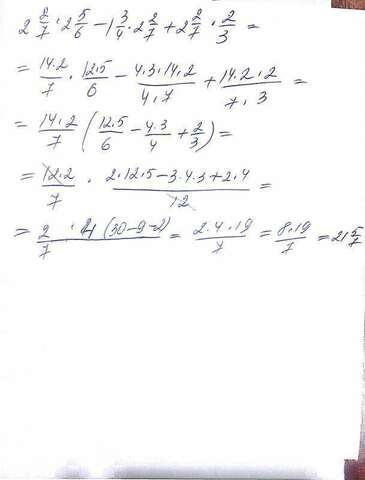 2 2/7 · 2 5/6 − 1 3/4 · 2 2/7 + 2 2/7 · 2/3 =
= 14·2/7 · 12·5/6 − 4·3·14·2/4·7 + 14·2·2/7·3 =
= 14·2/7 (12·5/6 − 4·3/4 + 2/3) =
= 12·2/7 · 2·12·5−3·4·3+2·4/12 =
= 2/7 · 4 (30−9−2) = 2·4·19/7 = 8·19/7 = 21 5/7